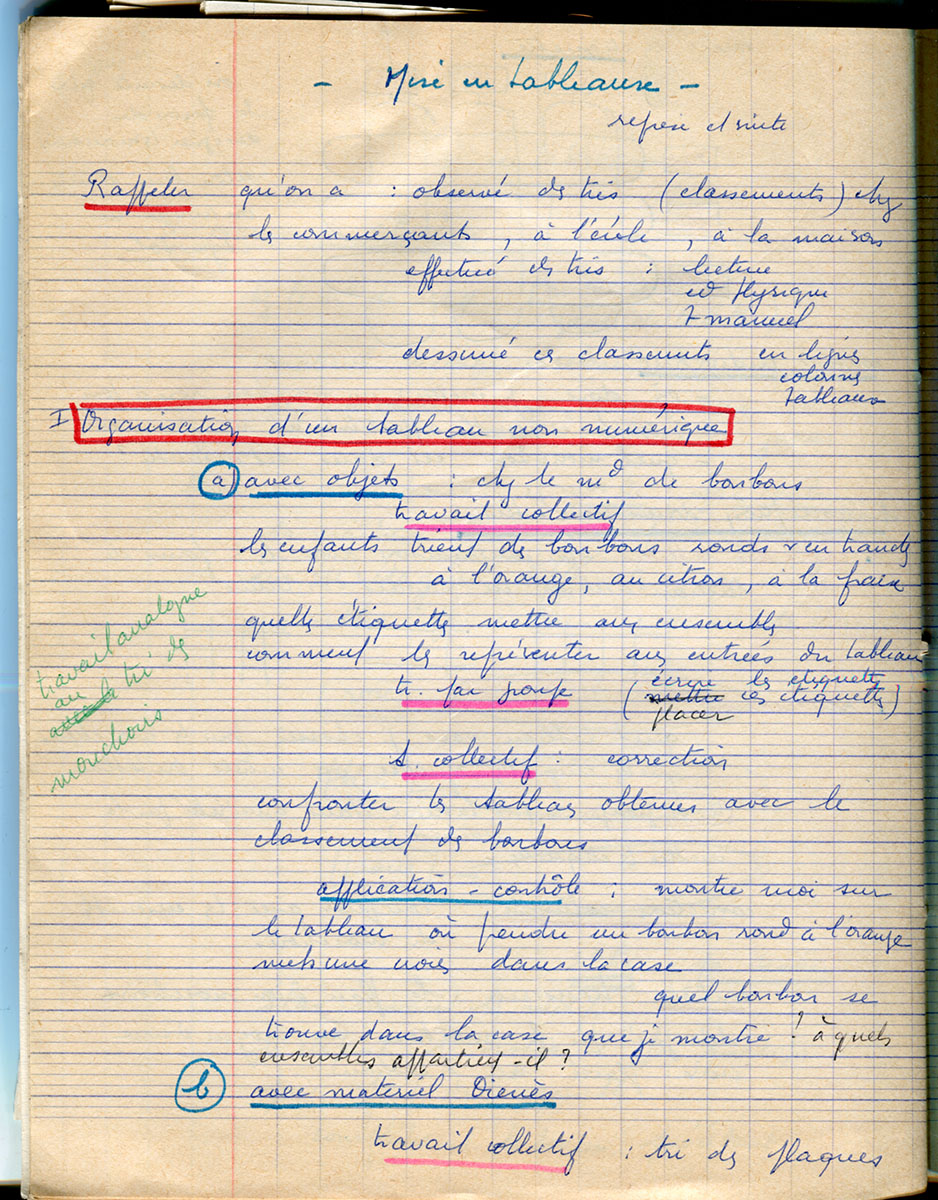 - Mise en tableaux -
reprise et suite
Rappeler qu'on a : observé des tris (classements) chez
les commerçants, à l'école, à la maison
effectué des tris : lecture
ed physique
t manuel
dessiné ces classements en lignes
colonnes
tableaux
I Organisation d'un tableau non numérique
a) avec objets : chez le md de bonbons
travail collectif
les enfants trient des bonbons ronds
à l'orange, au citron, à la fraise
quelles étiquettes mettre aux ensembles
comment les représenter aux entrées du tableau
écrire les étiquettes
tr. par groupe (mettre ces étiquettes)
placer
travail analogue
au
tri des
mouchoirs
t. collectif : correction
confronter les tableaux obtenus avec le
classement des bonbons
application - contrôle : montre moi sur
le tableau où pendre un bonbon rond à l'orange
mets une croix dans la case
quel bonbon se
trouve dans la case que je montre ? à quels
ensembles appartient-il ?
b) avec matériel Dienès
travail collectif : tri des plaques